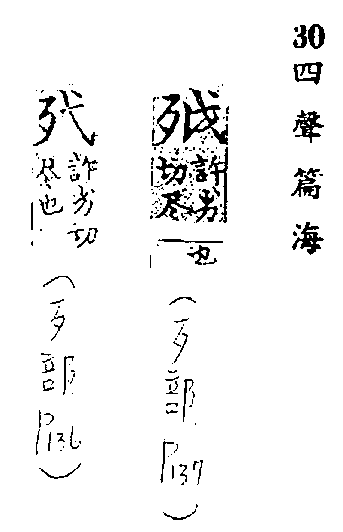 30四聲篇海
許劣
切尽
也
(歹部P.137)
許劣切
尽也
(歹部P.136)